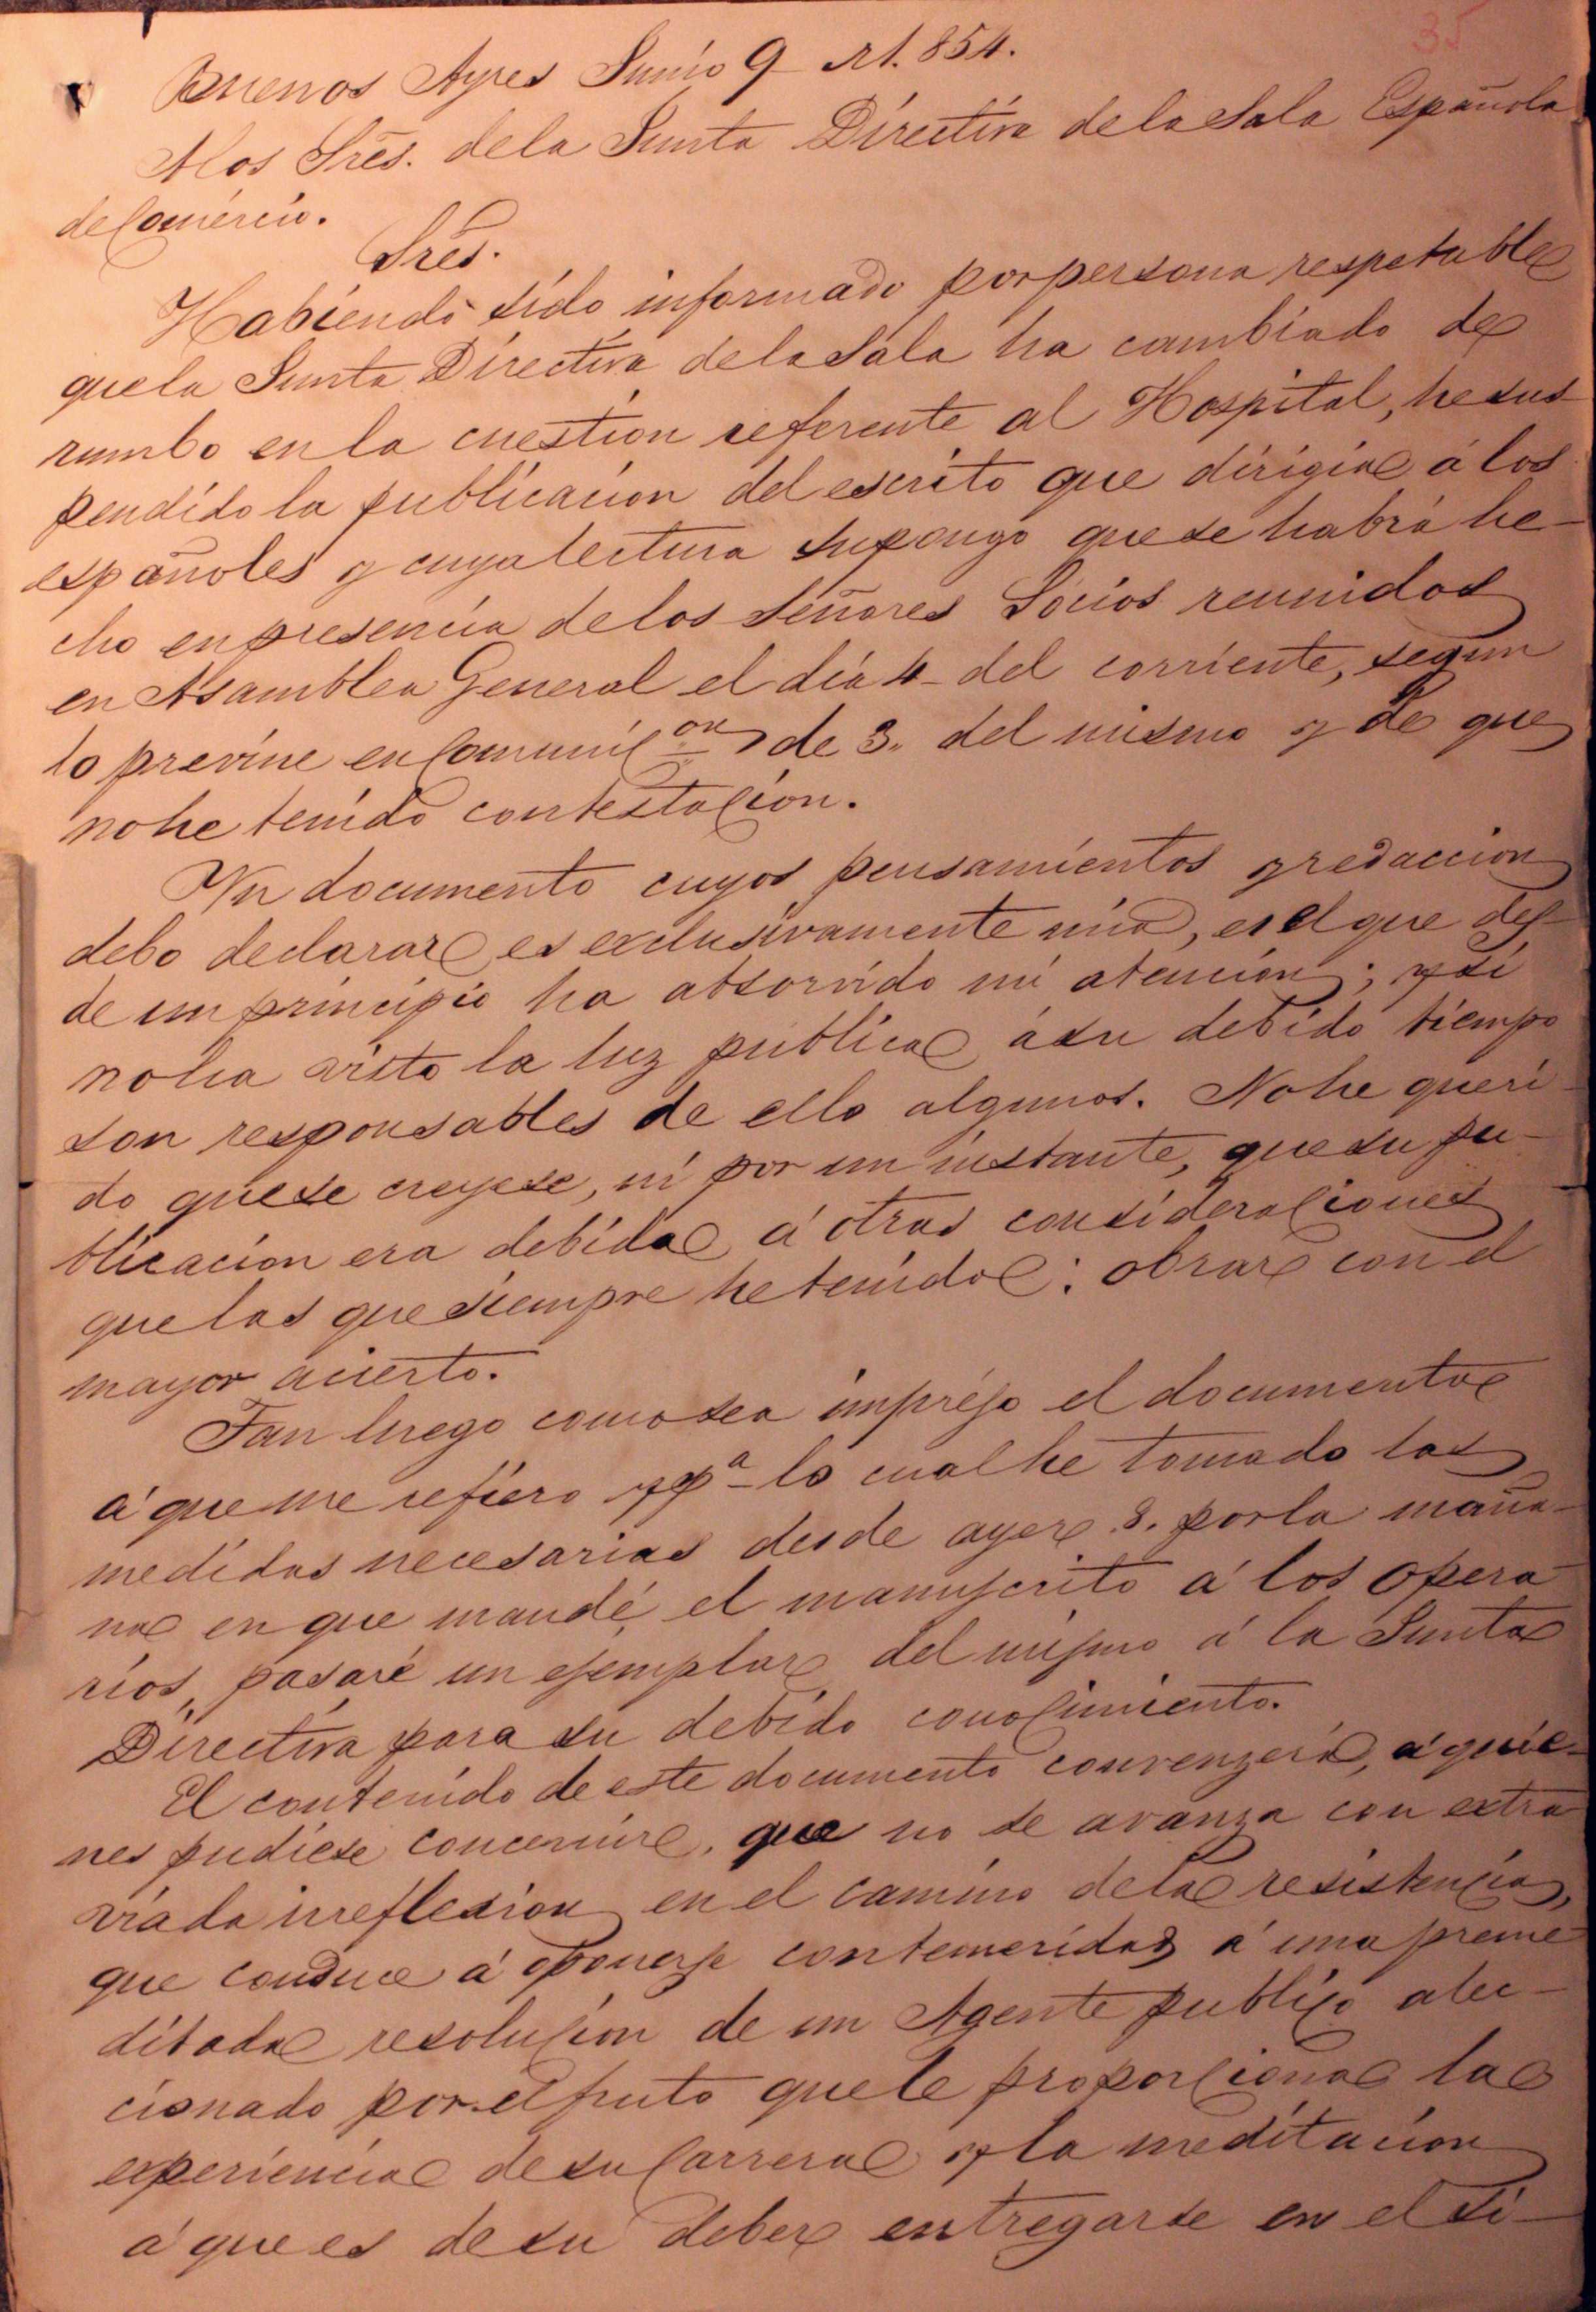 35
Buenos Ayres Junio 9 – A. 854.
A los Sres. de la Junta Directiva de la Sala Española
de Comercio.
Sres.
Habiendo sido informado por persona respetable
que la Junta Directiva de la Sala ha cambiado de
rumbo en la cuestion referente al Hospital, he sus-
pendido la publicacion del escrito que dirigia á los
españoles y cuya lectura supongo que se habrá he-
cho en presencia de los Señores Sócios reunidos
en Asamblea General el dia 4 – del corriente, segun
lo previne en Comunicon de 3. del mismo y de que
no he tenido contestacion.
Un documento cuyos pensamientos y redaccion
debo declarar es exclusivamente mia, es el que des-
de un principio ha absorvido mi atencion; y si
no ha visto la luz publica á su debido tiempo
son responsables de ello algunos. No he queri-
do que se creyese, ni por un instante, que su pu-
blicacion era debida á otras consideraciones
que las que siempre he tenido: obrar con el
mayor acierto.
Tan luego como sea impreso el documento
á que me refiero y pa lo cual he tomado las
medidas necesarias desde ayer 8. por la maña-
na en que mandé el manuscrito á los opera-
rios, pasaré un ejemplar del mismo á la Junta
Directiva para su debido conocimiento.
El contenido de este documento convenzerá, á quie-
nes pudiese concernir, que no se avanza con extra-
viada irreflexion en el camino de la resistencia,
que conduce á oponerse con temeridad á una preme-
ditada resolucion de un Agente publico alec-
cionado por el fruto que le proporciona la
experiencia de su Carrera y la meditacion
á que es de su deber entregarse en el si-